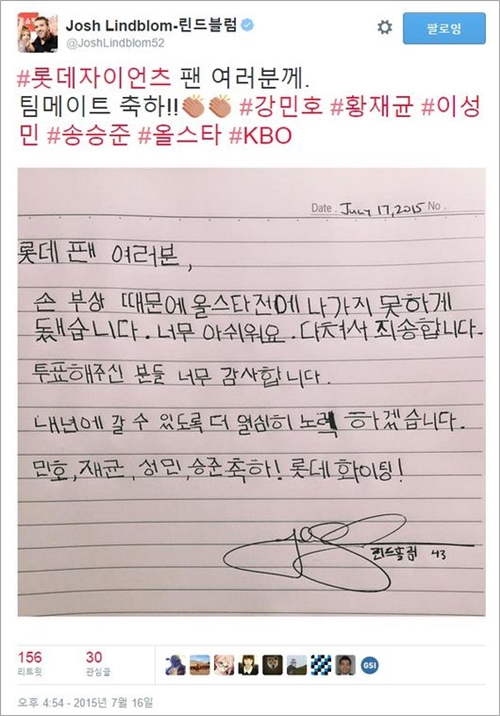 Josh Lindblom-린드블럼
@JoshLindblom52
팔로잉
#롯데자이언츠 팬 여러분께.
팀메이트 축하!!👏👏 #강민호 #황재균 #이성
민 #송승준 #올스타 #KBO
Date. July 17, 2015 No.
롯데 팬 여러분,
손 부상 때문에 올스타전에 나가지 못하게
됐습니다. 너무 아쉬워요. 다쳐서 죄송합니다.
투표해주신 분들 너무 감사합니다.
내년에 갈 수 있도록 더 열심히 노력 하겠습니다.
민호, 재균, 성민, 승준 축하! 롯데 화이팅!
린드블럼 43
156 30
리트윗 관심글
GSI
오후 4:54 - 2015년 7월 16일